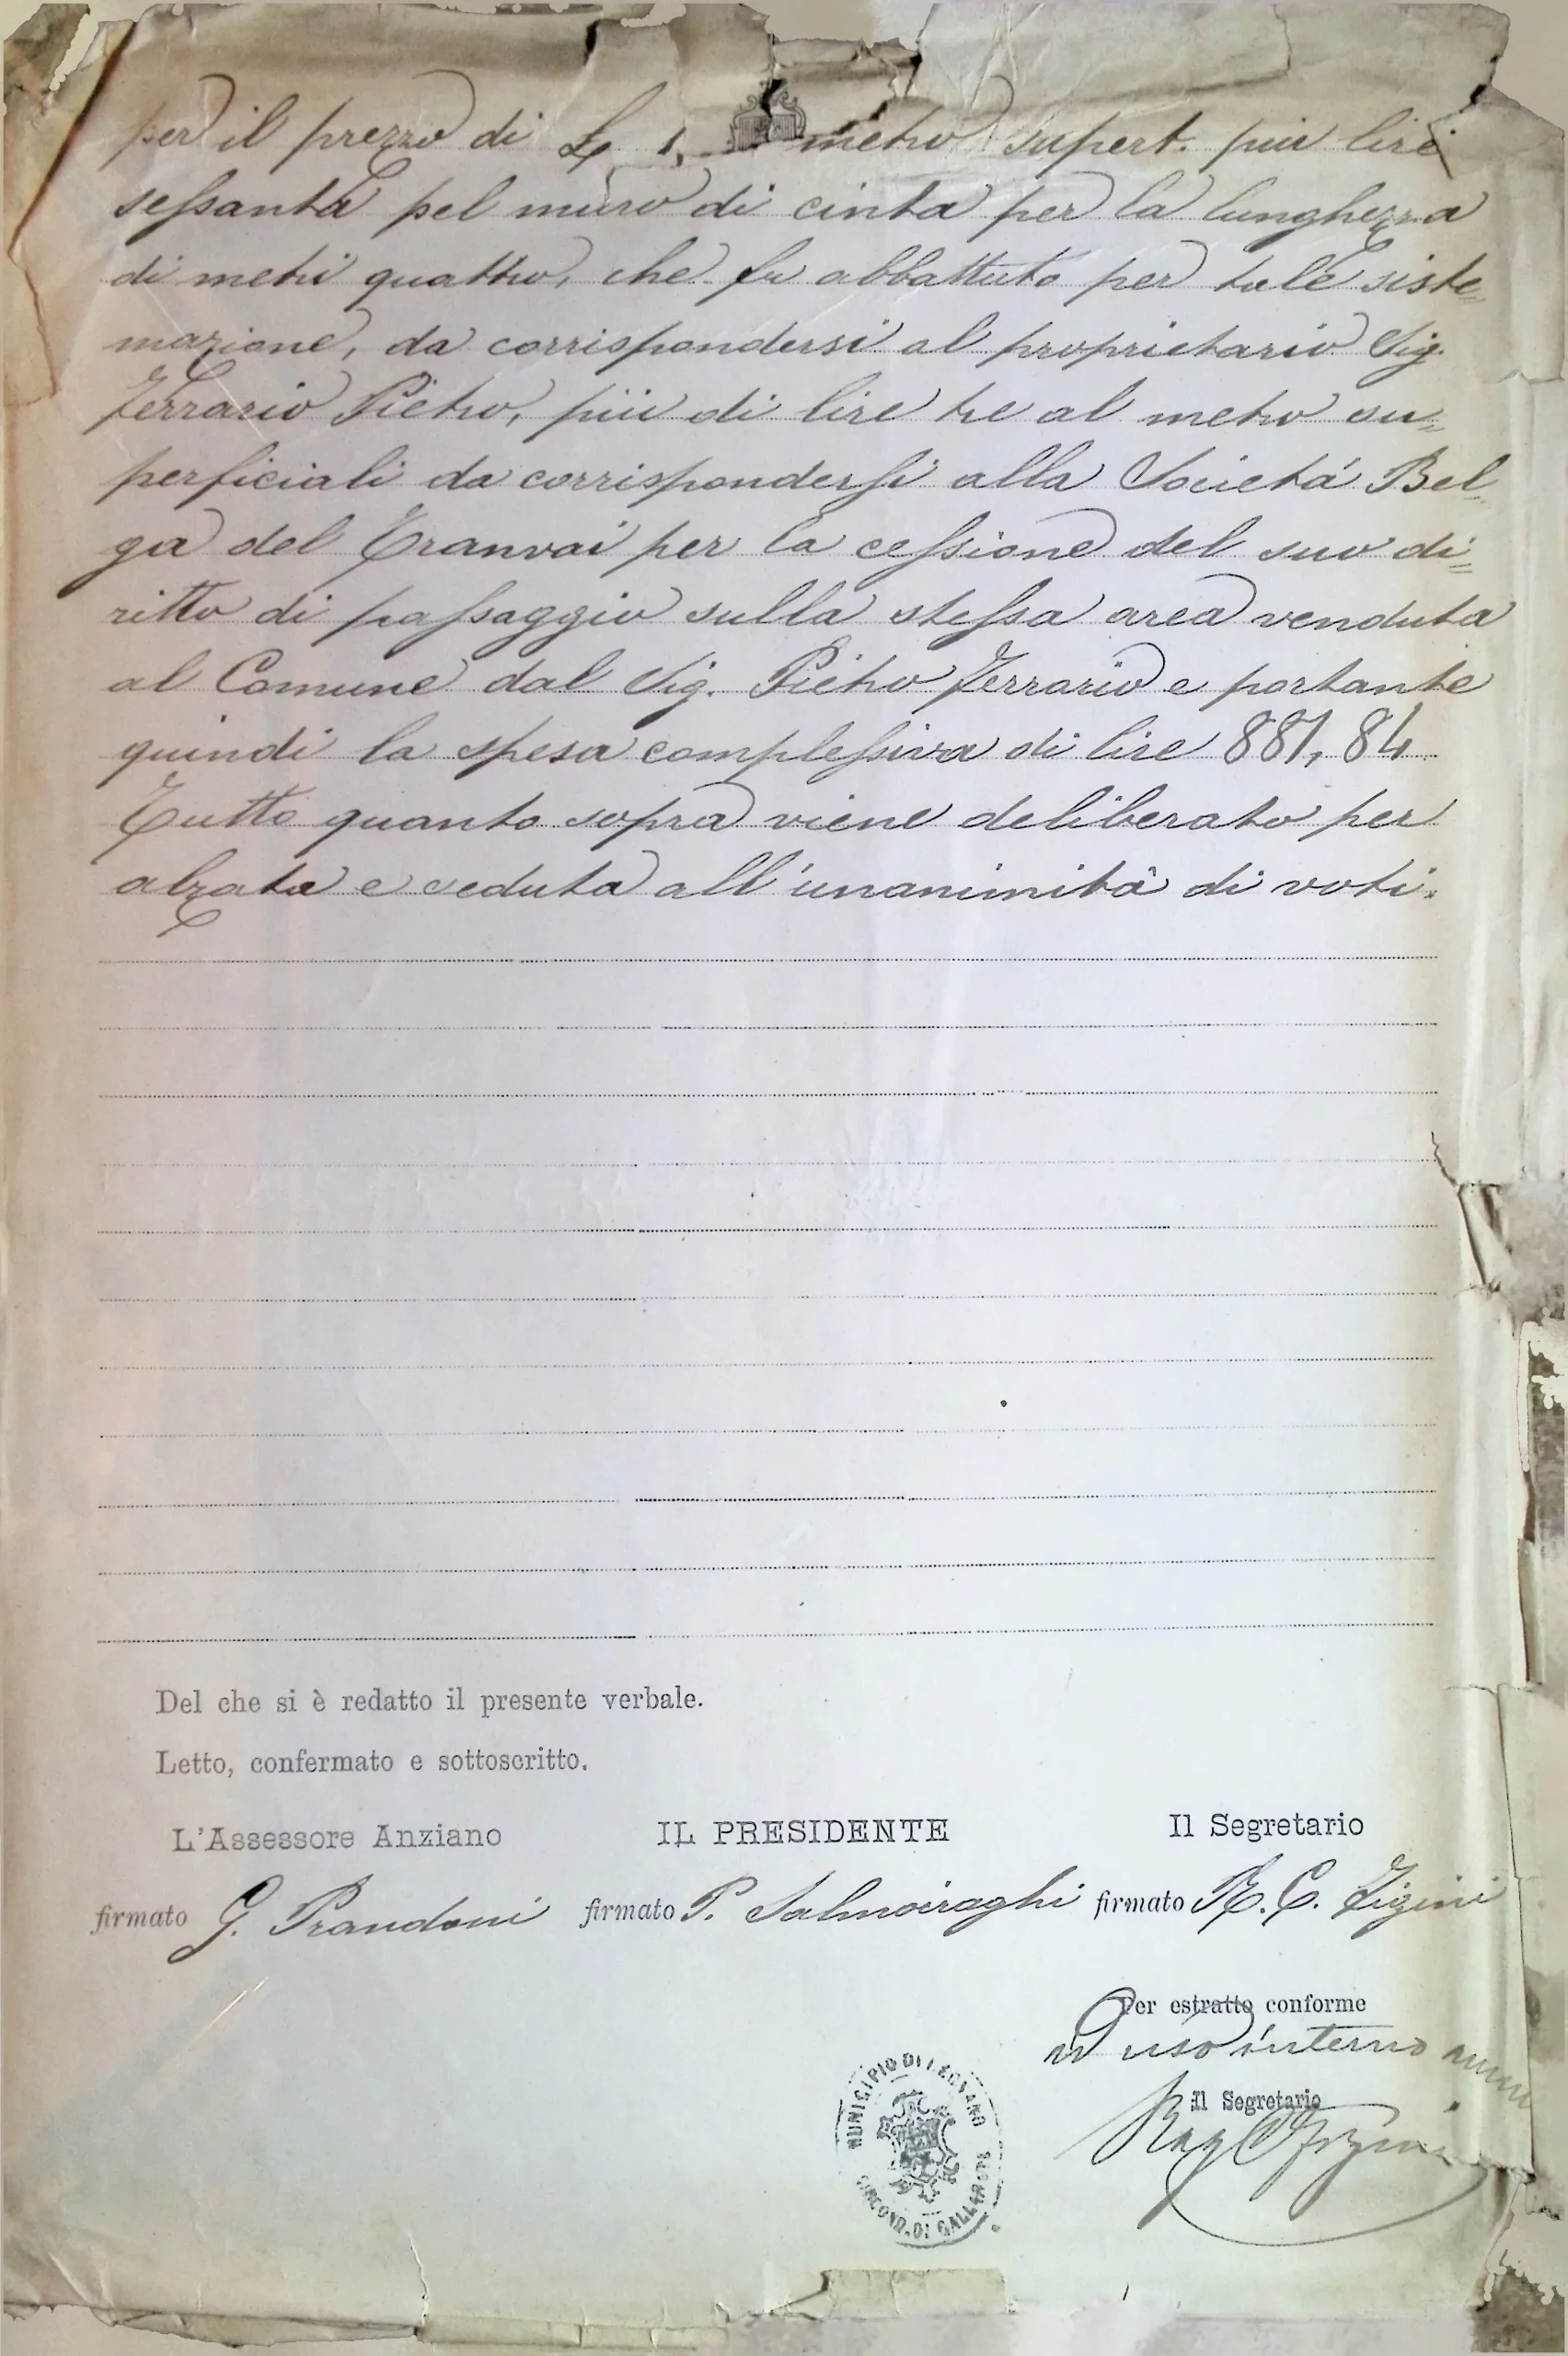 per il prezzo di L. 1, metro supert. piu lire
sessanta pel muro di cinta per la lunghezza
di metri quattro, che fu abbattuto per tale siste=
mazione, da corrispondersi al proprietario Sig.
Ferrario Pietro, più di lire tre al metro su=
perficiali da corrispondersi alla Società Bel=
ga del Tranvai per la cessione del suo di=
ritto di passaggio sulla stessa area venduta
al Comune dal Sig. Pietro Ferrario e portante
quindi la spesa complessiva di lire 881,84
Tutto quanto sopra viene deliberato per
alzata e seduta all'unanimità di voti.
Del che si è redatto il presente verbale.
Letto, confermato e sottoscritto.
L'Assessore Anziano IL PRESIDENTE Il Segretario
firmato G. Prandoni firmato P. Salmoiraghi firmato R. C. Figini
Per estratto conforme
ad uso interno
Il Segretario
Rag C Figini
MUNICIPIO DI LEGNANO
CIRCOND. DI GALLARATE